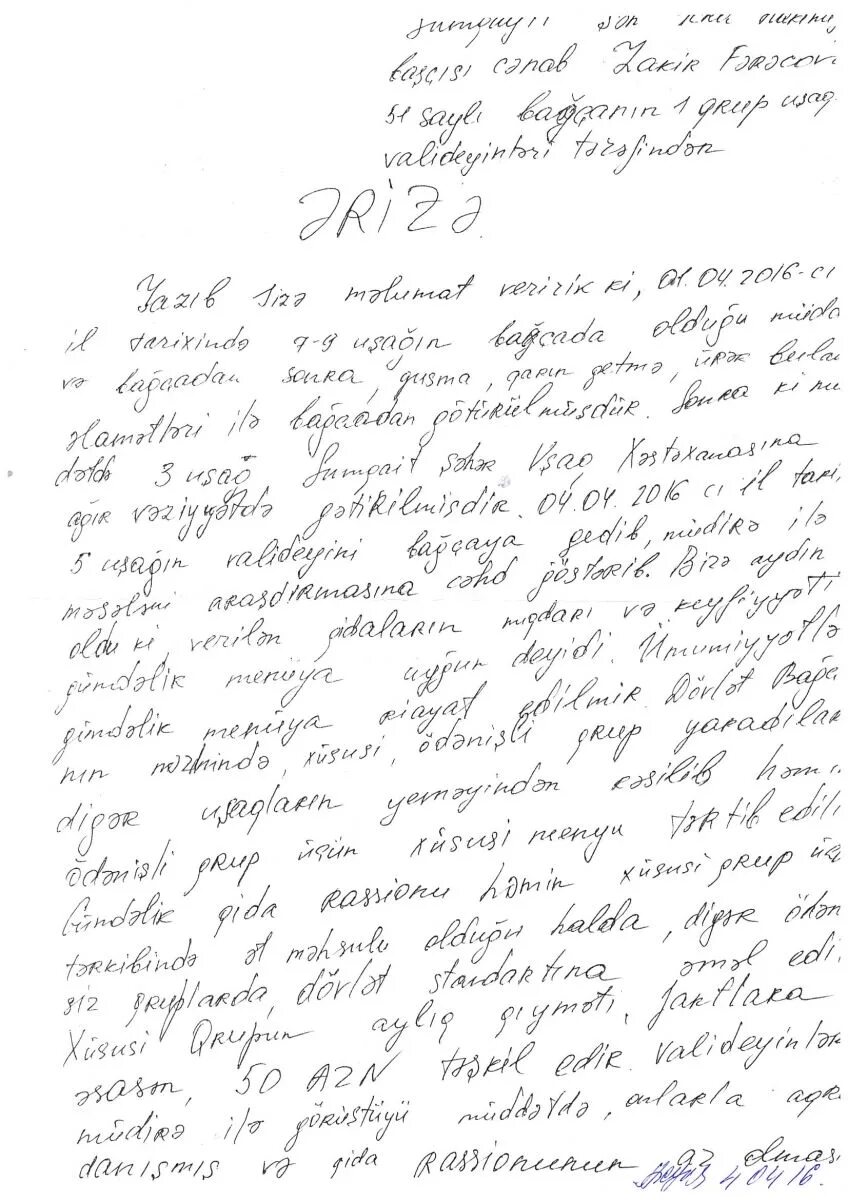 Sumqayıt
başçısı cənab Zakir Fərəcov
51 saylı bağçanın 1 qrup uşaq
valideyinləri tərəfindən
ƏRİZƏ
Yazıb sizə məlumat veririk ki, 01.04.2016-cı
il tarixində 7-9 uşağın bağçada olduğu müdd
və bağçadan sonra, qusma, qarın getmə, ürək bulan
əlamətləri ilə bağçadan götürülmüşdür. Sonra ki mü
dətdə 3 uşağ Sumqait şəhər Uşaq Xəstəxanasına
ağır vəziyyətdə gətirilmişdir. 04.04.2016 cı il tari
5 uşağın valideyini bağçaya gedib, müdirə ilə
məsələni araşdırmasına cəhd göstərib. Bizə aydın
oldu ki, verilən qidaların miqdarı və keyfiyyəti
gündəlik menüya uyğun deyidi. Ümumiyyətlə
gündəlik menüya riayət edilmir. Dövlət Bağça
nın nəzdində, xüsusi, ödənişli qrup yaradılar
digər uşaqların yeməyindən kəsilib həmi
ödənişli qrup üçün xüsusi menyu tərtib edili
Gündəlik qida rassionu həmin xüsusi qrup üç
tərkibində ət məhsulu olduğu halda, digər ödən
siz qruplarda, dövlət standartına əməl edi
Xüsusi Qrupun aylıq qıyməti, faktlara
əsasən, 50 AZN təşkil edir. Valideyinlər
müdirə ilə görüştüyü müddətdə, onlarla aqr
danışmış və qida rassionunun az olması
4 04 16.